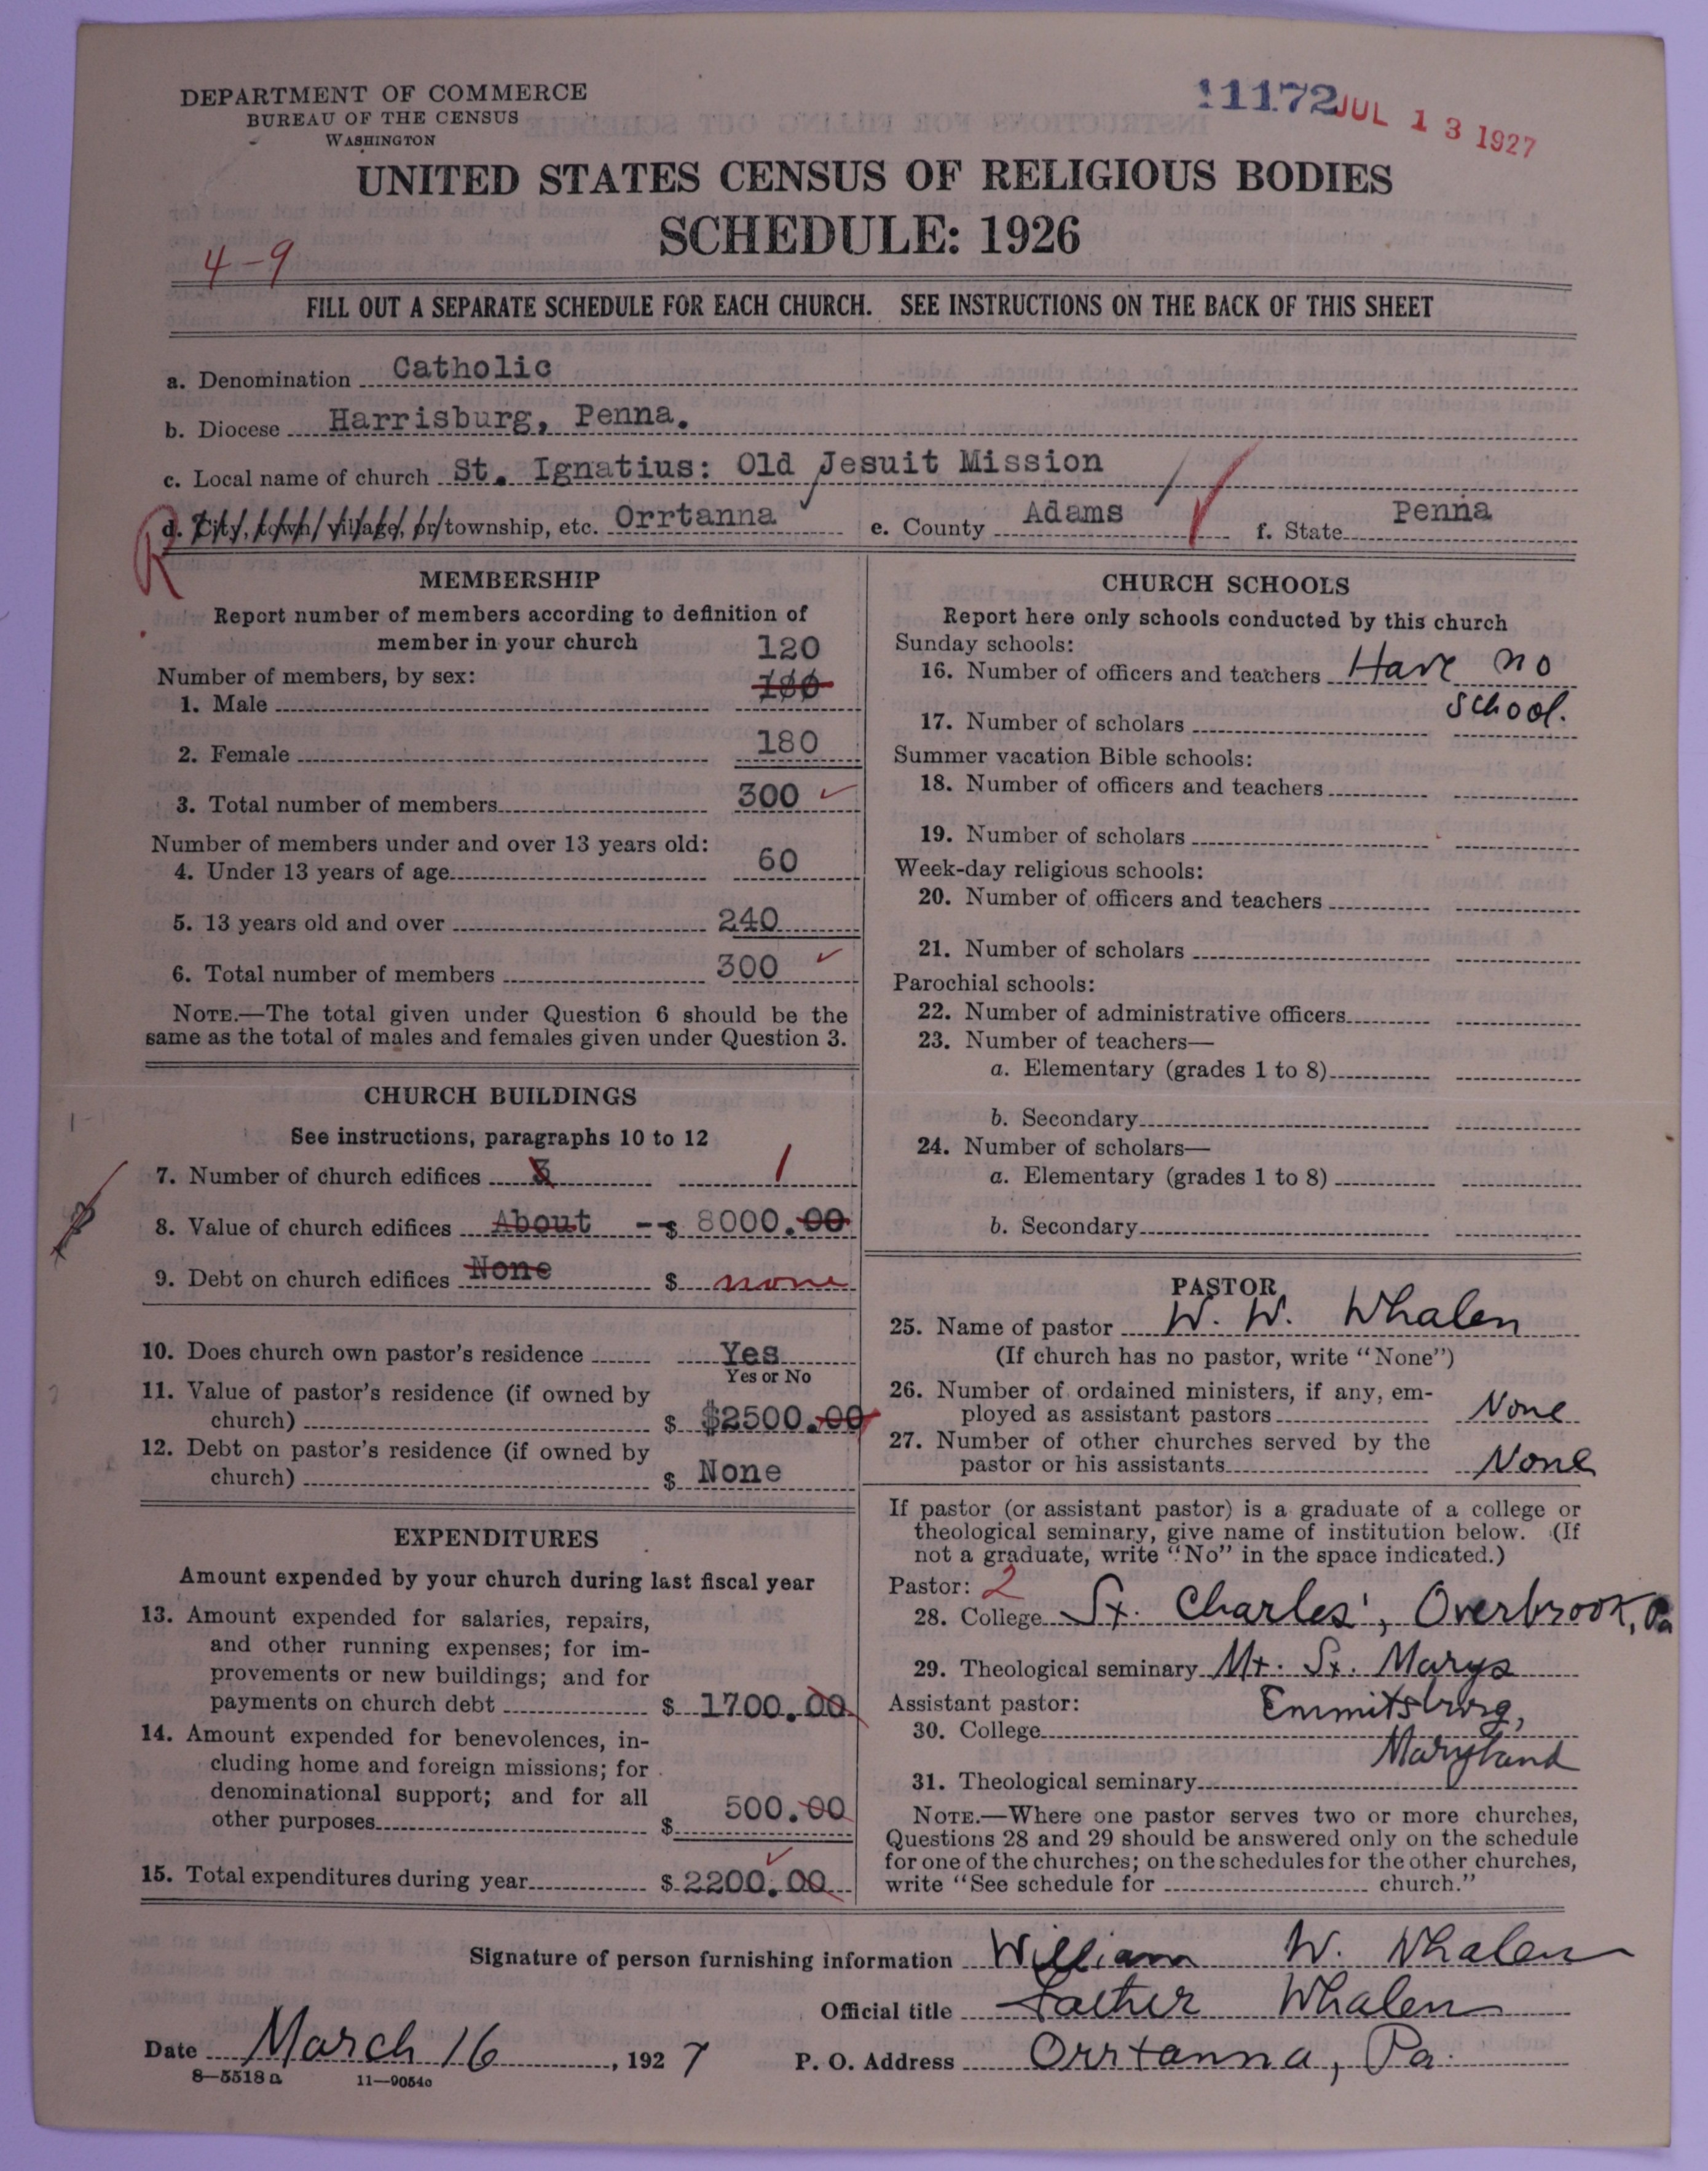 DEPARTMENT OF COMMERCE
BUREAU OF THE CENSUS
WASHINGTON
11172 JUL 13 1927
UNITED STATES CENSUS OF RELIGIOUS BODIES
SCHEDULE: 1926
4-9
FILL OUT A SEPARATE SCHEDULE FOR EACH CHURCH. SEE INSTRUCTIONS ON THE BACK OF THIS SHEET
a. Denomination Catholic
b. Diocese Harrisburg, Penna.
c. Local name of church St. Ignatius: Old Jesuit Mission
d. City, town, village, or township, etc. Orrtanna e. County Adams f. State Penna
MEMBERSHIP
Report number of members according to definition of
member in your church
120
Number of members, by sex:
1. Male
2. Female 180
3. Total number of members 300
Number of members under and over 13 years old:
4. Under 13 years of age 60
5. 13 years old and over 240
6. Total number of members 300
NOTE.—The total given under Question 6 should be the
same as the total of males and females given under Question 3.
CHURCH BUILDINGS
See instructions, paragraphs 10 to 12
7. Number of church edifices 1
8. Value of church edifices About --$ 8000.00
9. Debt on church edifices None $ none
10. Does church own pastor's residence Yes
Yes or No
11. Value of pastor's residence (if owned by
church) $ $2500.00
12. Debt on pastor's residence (if owned by
church) $ None
EXPENDITURES
Amount expended by your church during last fiscal year
13. Amount expended for salaries, repairs,
and other running expenses; for im-
provements or new buildings; and for
payments on church debt $ 1700.00
14. Amount expended for benevolences, in-
cluding home and foreign missions; for
denominational support; and for all
other purposes $ 500.00
15. Total expenditures during year $ 2200.00
CHURCH SCHOOLS
Report here only schools conducted by this church
Sunday schools:
16. Number of officers and teachers Have no
school.
17. Number of scholars
Summer vacation Bible schools:
18. Number of officers and teachers
19. Number of scholars
Week-day religious schools:
20. Number of officers and teachers
21. Number of scholars
Parochial schools:
22. Number of administrative officers
23. Number of teachers—
a. Elementary (grades 1 to 8)
b. Secondary
24. Number of scholars—
a. Elementary (grades 1 to 8)
b. Secondary
PASTOR
25. Name of pastor W. W. Whalen
(If church has no pastor, write "None")
26. Number of ordained ministers, if any, em-
ployed as assistant pastors None
27. Number of other churches served by the
pastor or his assistants None
If pastor (or assistant pastor) is a graduate of a college or
theological seminary, give name of institution below. (If
not a graduate, write "No" in the space indicated.)
Pastor: 2
28. College St. Charles', Overbrook, Pa
29. Theological seminary Mt. St. Marys
Assistant pastor: Emmitsburg,
30. College
Maryland
31. Theological seminary
NOTE.—Where one pastor serves two or more churches,
Questions 28 and 29 should be answered only on the schedule
for one of the churches; on the schedules for the other churches,
write "See schedule for church."
Signature of person furnishing information William W. Whalen
Official title Father Whalen
Date March 16, 1927 P. O. Address Orrtanna, Pa.
8—5518a 11—9054o